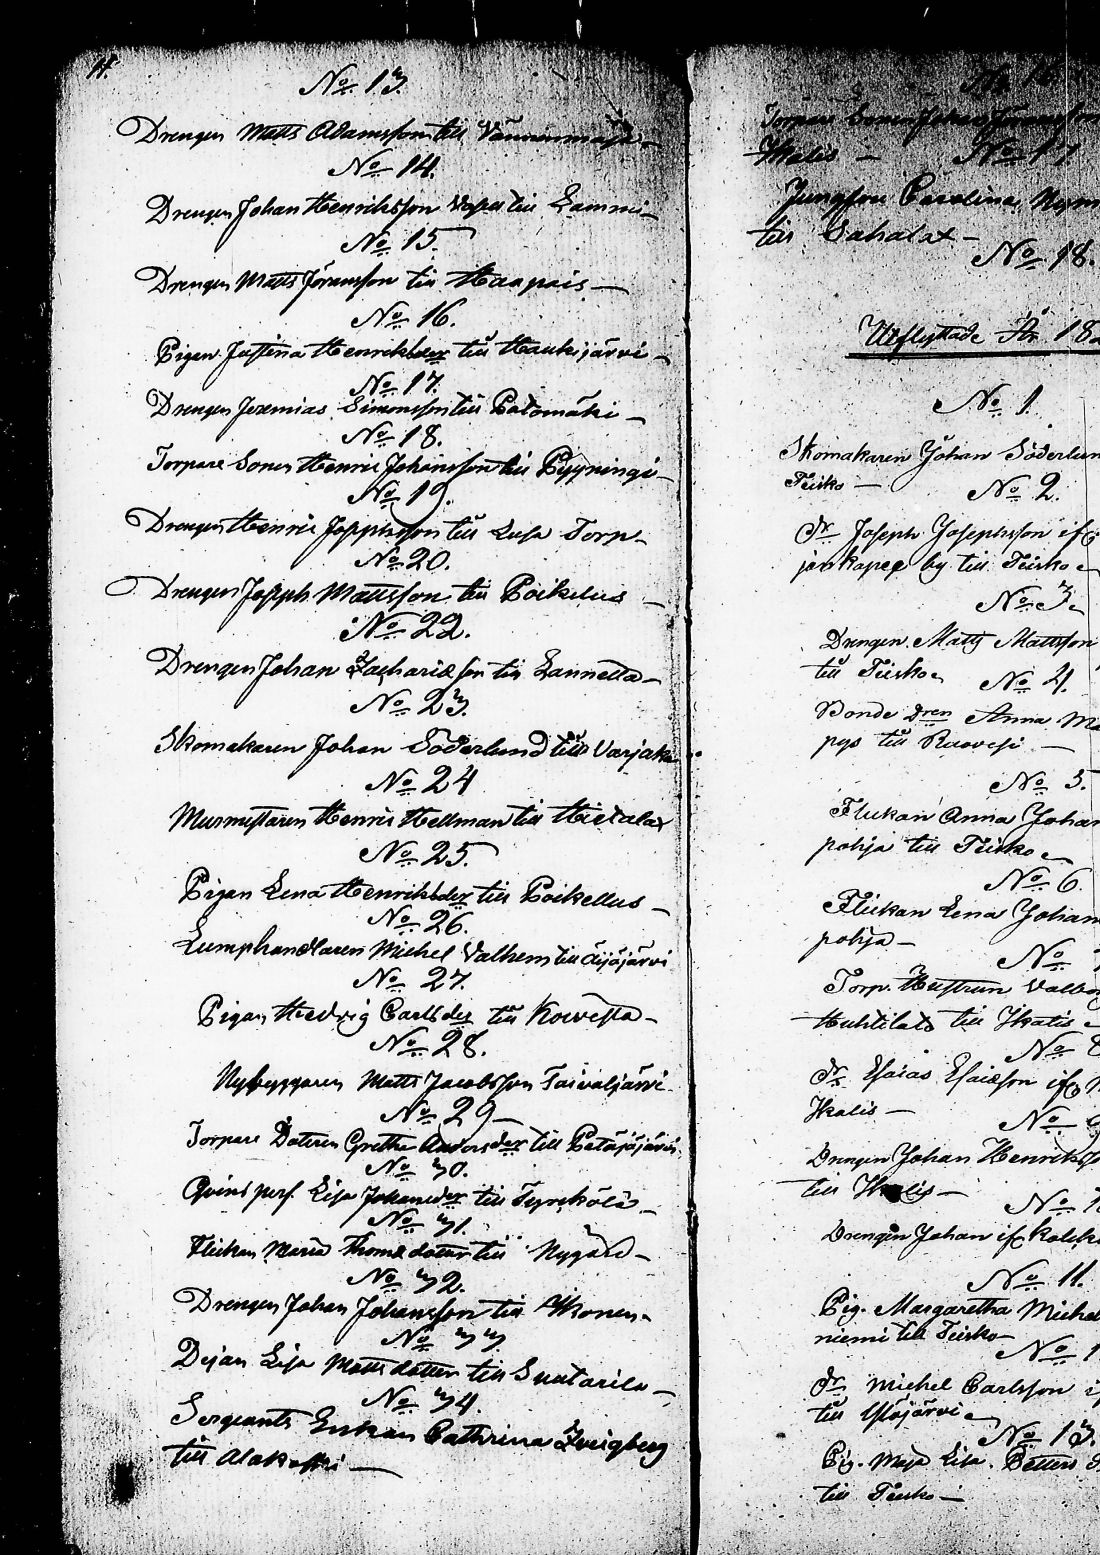 14.
No 13.
Drengen Matts Adamsson till
No 14.
Drengen Johan Henriksson till Lammi
No 15.
Drengen Matts Göransson till Haapais
No 16.
Pigan Justina Henriksder till Haukijärvi
No 17.
Drengen Jeremias Simonsson till Palomäki
No 18.
Torpare Sonen Henric Johansson till Pyyningi
No 19.
Drengen Henric Josephsson till Torp
No 20.
Drengen Joseph Mattsson till Poikelus
No 22.
Drengen Johan Zachariæson till Lannetta
No 23.
Skomakaren Johan Söderlund till Varjaka
No 24
Murmästaren Henric Hellman till Hietalax
No 25.
Pigan Lena Henriksder till Poikellus
No 26.
Lumphandlaren Michel Valhem till
No 27.
Pigan Hedvig Carlsder till Kovesta
No 28.
Nybyggaren Matts Jacobsson Taivaljärvi
No 29
Torpare Dotren Gretha Andersder till Petäjäjärvi
No 30.
Qvinspers. Lisa Johansder till Tyrckölä
No 31.
Flickan Maria Thomædotter till Nygård
No 32.
Drengen Johan Johansson till Ikonen
No 33.
Dejan Lisa Mattsdotter till Suutarila
No 34.
Sergeants Enkan Cathrina Zveigberg
till Alakoski
No
Torpare Sonen Johan Göransson
Ikalis
No 17
Jungfrun Carolina Nym
till Sahalax
No 18.
Utflyttade År 18
No 1.
Skomakaren Johan Söderlun
Teisko
No 2.
Dr Joseph Josephsson if
by till Teisko
No 3.
Drengen Matts Mattsson
till Teisko
No 4.
Bonde Dren Anna Ma
till Ruovesi
No 5.
Flickan Anna Johan
pohja till Teisko
No 6.
Flickan Lena Johan
pohja
No 7
Torp. Hustrun Valbor
till Ikalis
No 8
Dr Esaias Esaiæson if
Ikalis
No 9
Drengen Johan Henrikss
till Ikalis
No 1
Drengen Johan if
No 11.
Pig. Margaretha Michel
niemi till Teisko
No 1
Dr Michel Carlsson i
till Ylöjärvi
No 13.
Pig. Maja Lisa Petters
till Teisko